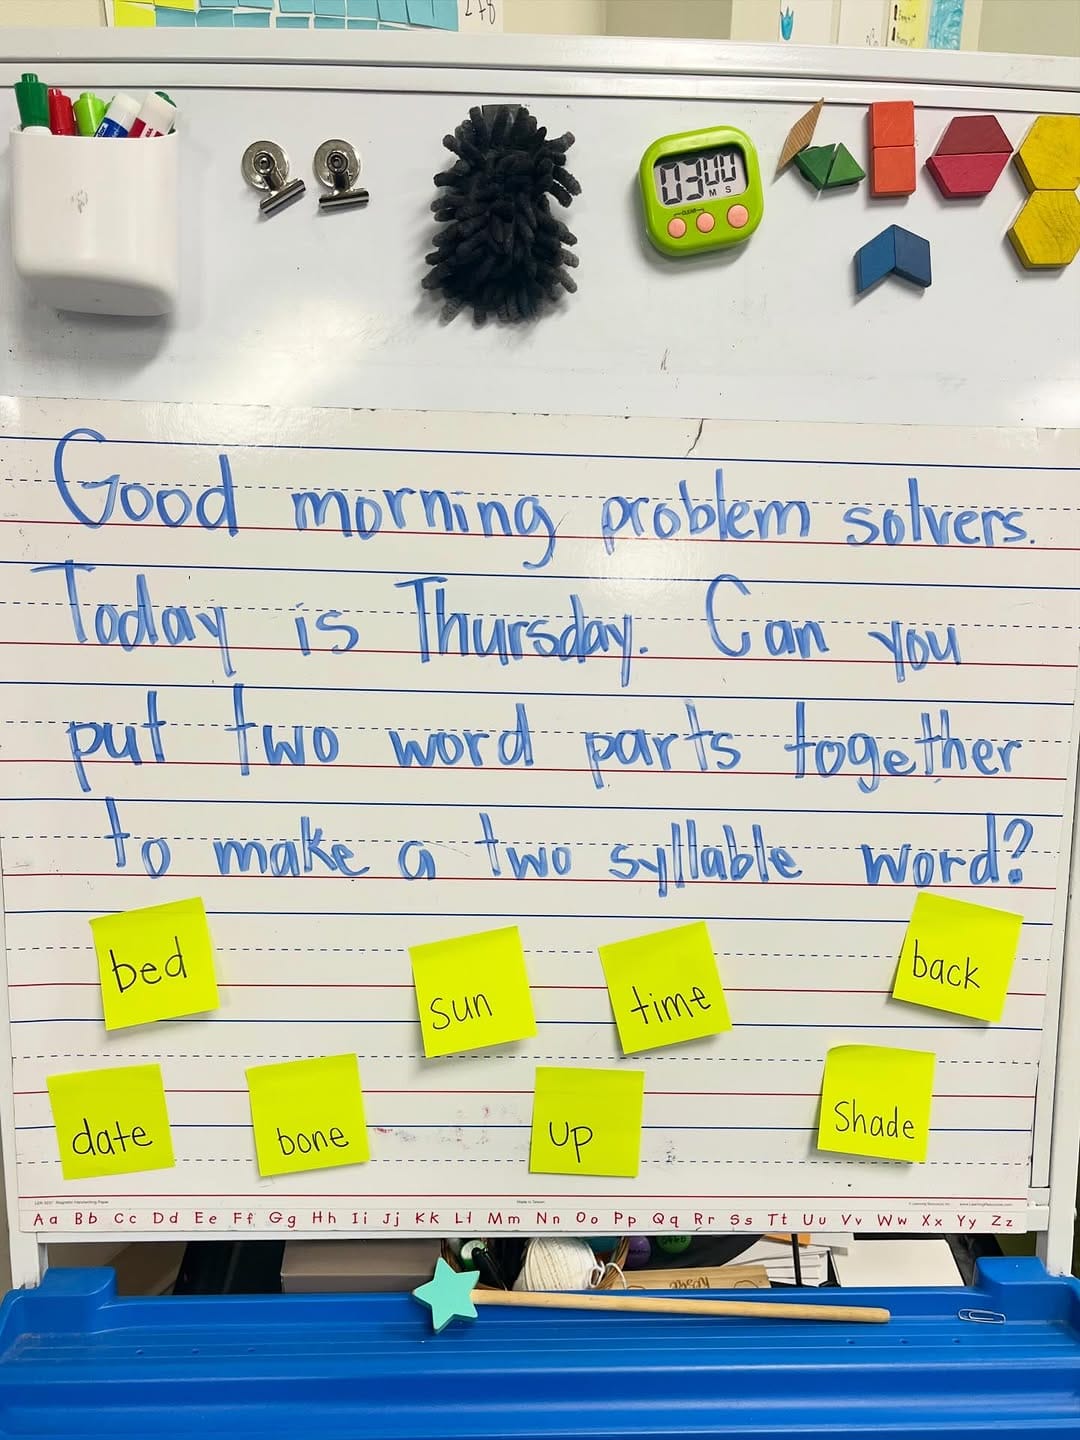 278
03:00
M S
CLEAR
Good morning problem solvers.
Today is Thursday. Can you
put two word parts together
to make a two syllable word?
bed
sun
time
back
date
bone
up
Shade
Magnetic Handwriting Paper
Made in Taiwan
Aa Bb Cc Dd Ee Ff Gg Hh Ii Jj Kk Ll Mm Nn Oo Pp Qq Rr Ss Tt Uu Vv Ww Xx Yy Zz